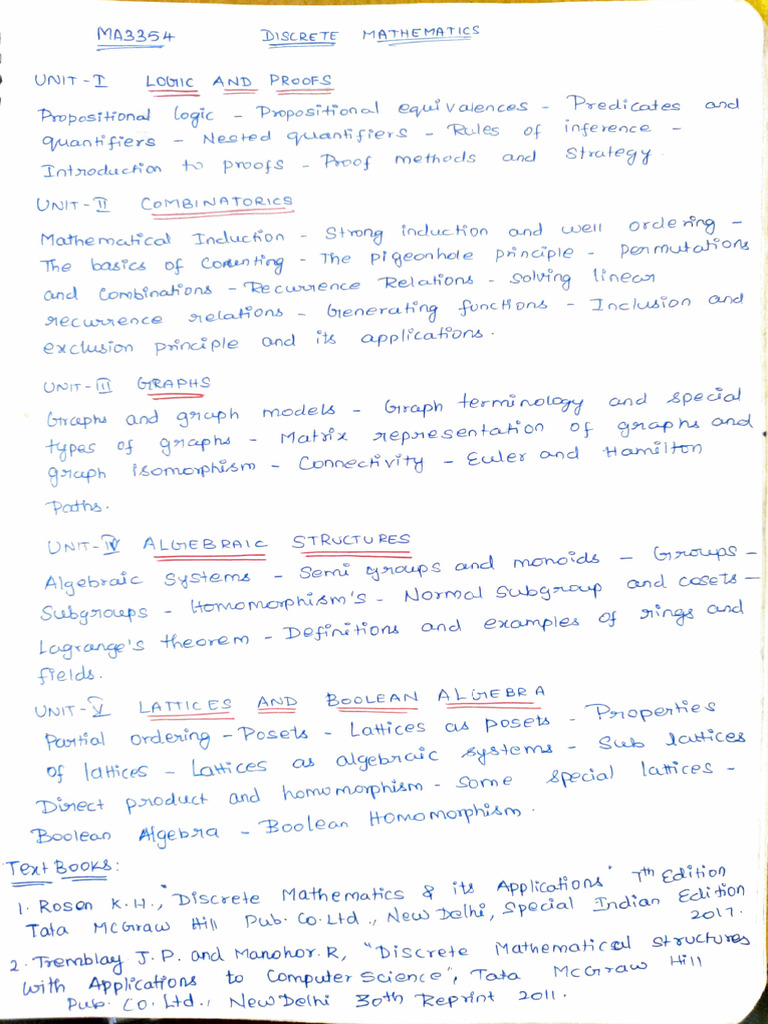 MA3354 DISCRETE MATHEMATICS
UNIT-I LOGIC AND PROOFS
Propositional logic - Propositional equivalences - Predicates and
quantifiers - Nested quantifiers - Rules of inference -
Introduction to proofs - Proof methods and Strategy.
UNIT-II COMBINATORICS
Mathematical Induction - Strong induction and well ordering -
The basics of Counting - The pigeonhole principle - permutations
and combinations - Recurrence Relations - solving linear
recurrence relations - Generating functions - Inclusion and
exclusion principle and its applications.
UNIT-III GRAPHS
Graphs and graph models - Graph terminology and special
types of graphs - Matrix representation of graphs and
graph isomorphism - Connectivity - Euler and Hamilton
Paths.
UNIT-IV ALGEBRAIC STRUCTURES
Algebraic Systems - Semi groups and monoids - Groups -
Subgroups - Homomorphism's - Normal subgroup and cosets -
Lagrange's theorem - Definitions and examples of rings and
fields.
UNIT-V LATTICES AND BOOLEAN ALGEBRA
Partial ordering - Posets - Lattices as posets - Properties
of lattices - Lattices as algebraic systems - Sub lattices
Direct product and homomorphism - some special lattices -
Boolean Algebra - Boolean Homomorphism.
Text Books:
1. Rosen K.H., "Discrete Mathematics & its Applications" 7th Edition
Tata McGraw Hill Pub. Co. Ltd., New Delhi, Special Indian Edition
2017.
2. Tremblay J.P. and Manohor.R, "Discrete Mathematical structures
with Applications to Computer Science", Tata McGraw Hill
Pub. Co. Ltd., New Delhi 30th Reprint 2011.